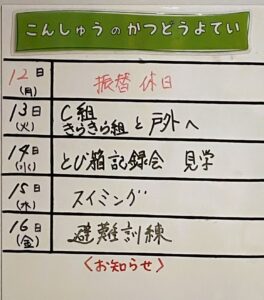 こんしゅうのかつどうよてい
12日(月) 振替休日
13日(火) C組 きらきら組 と戸外へ
14日(水) とび箱記録会 見学
15日(木) スイミング
16日(金) 避難訓練
<お知らせ>